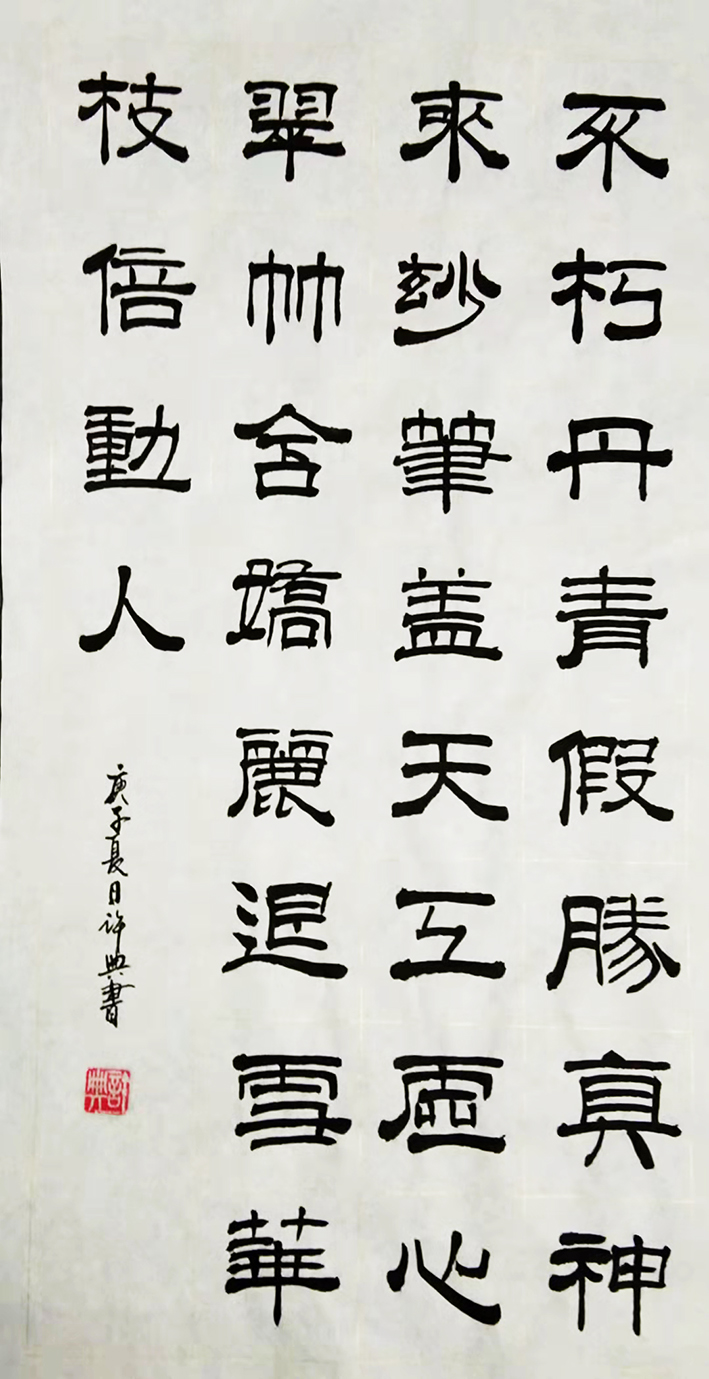 不朽丹青假勝真神
來玅筆盖天工虚心
翠竹含嬌麗退雪華
枝倍動人
庚子夏日許典書
許典